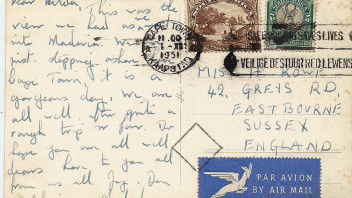 Dear
This was the
view we had as we
into Madeira. We are
just slipping ashore
Cape Town, it is a
gorgeous day. We are
all well after quite a
rough trip so far. Do
hope you are all well
dears, love to you all
from us all Joy, Don
CAPE TOWN
11.00
1951
KAAPSTAD
LIVES
VEILIGE BESTUUR RED LEWENS
MISS H. ROWE
42, GREYS RD,
EASTBOURNE
SUSSEX
ENGLAND
PAR AVION
BY AIR MAIL